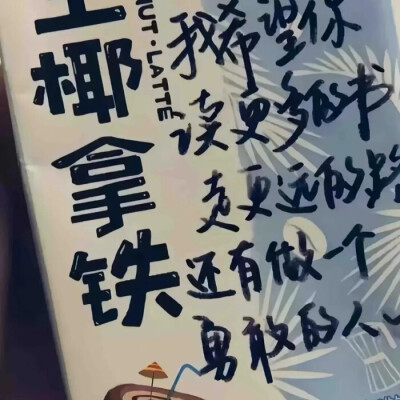 生椰拿铁
NUT·LATTE
我希望你
读更多的书
走更远的路
还有做一个
勇敢的人